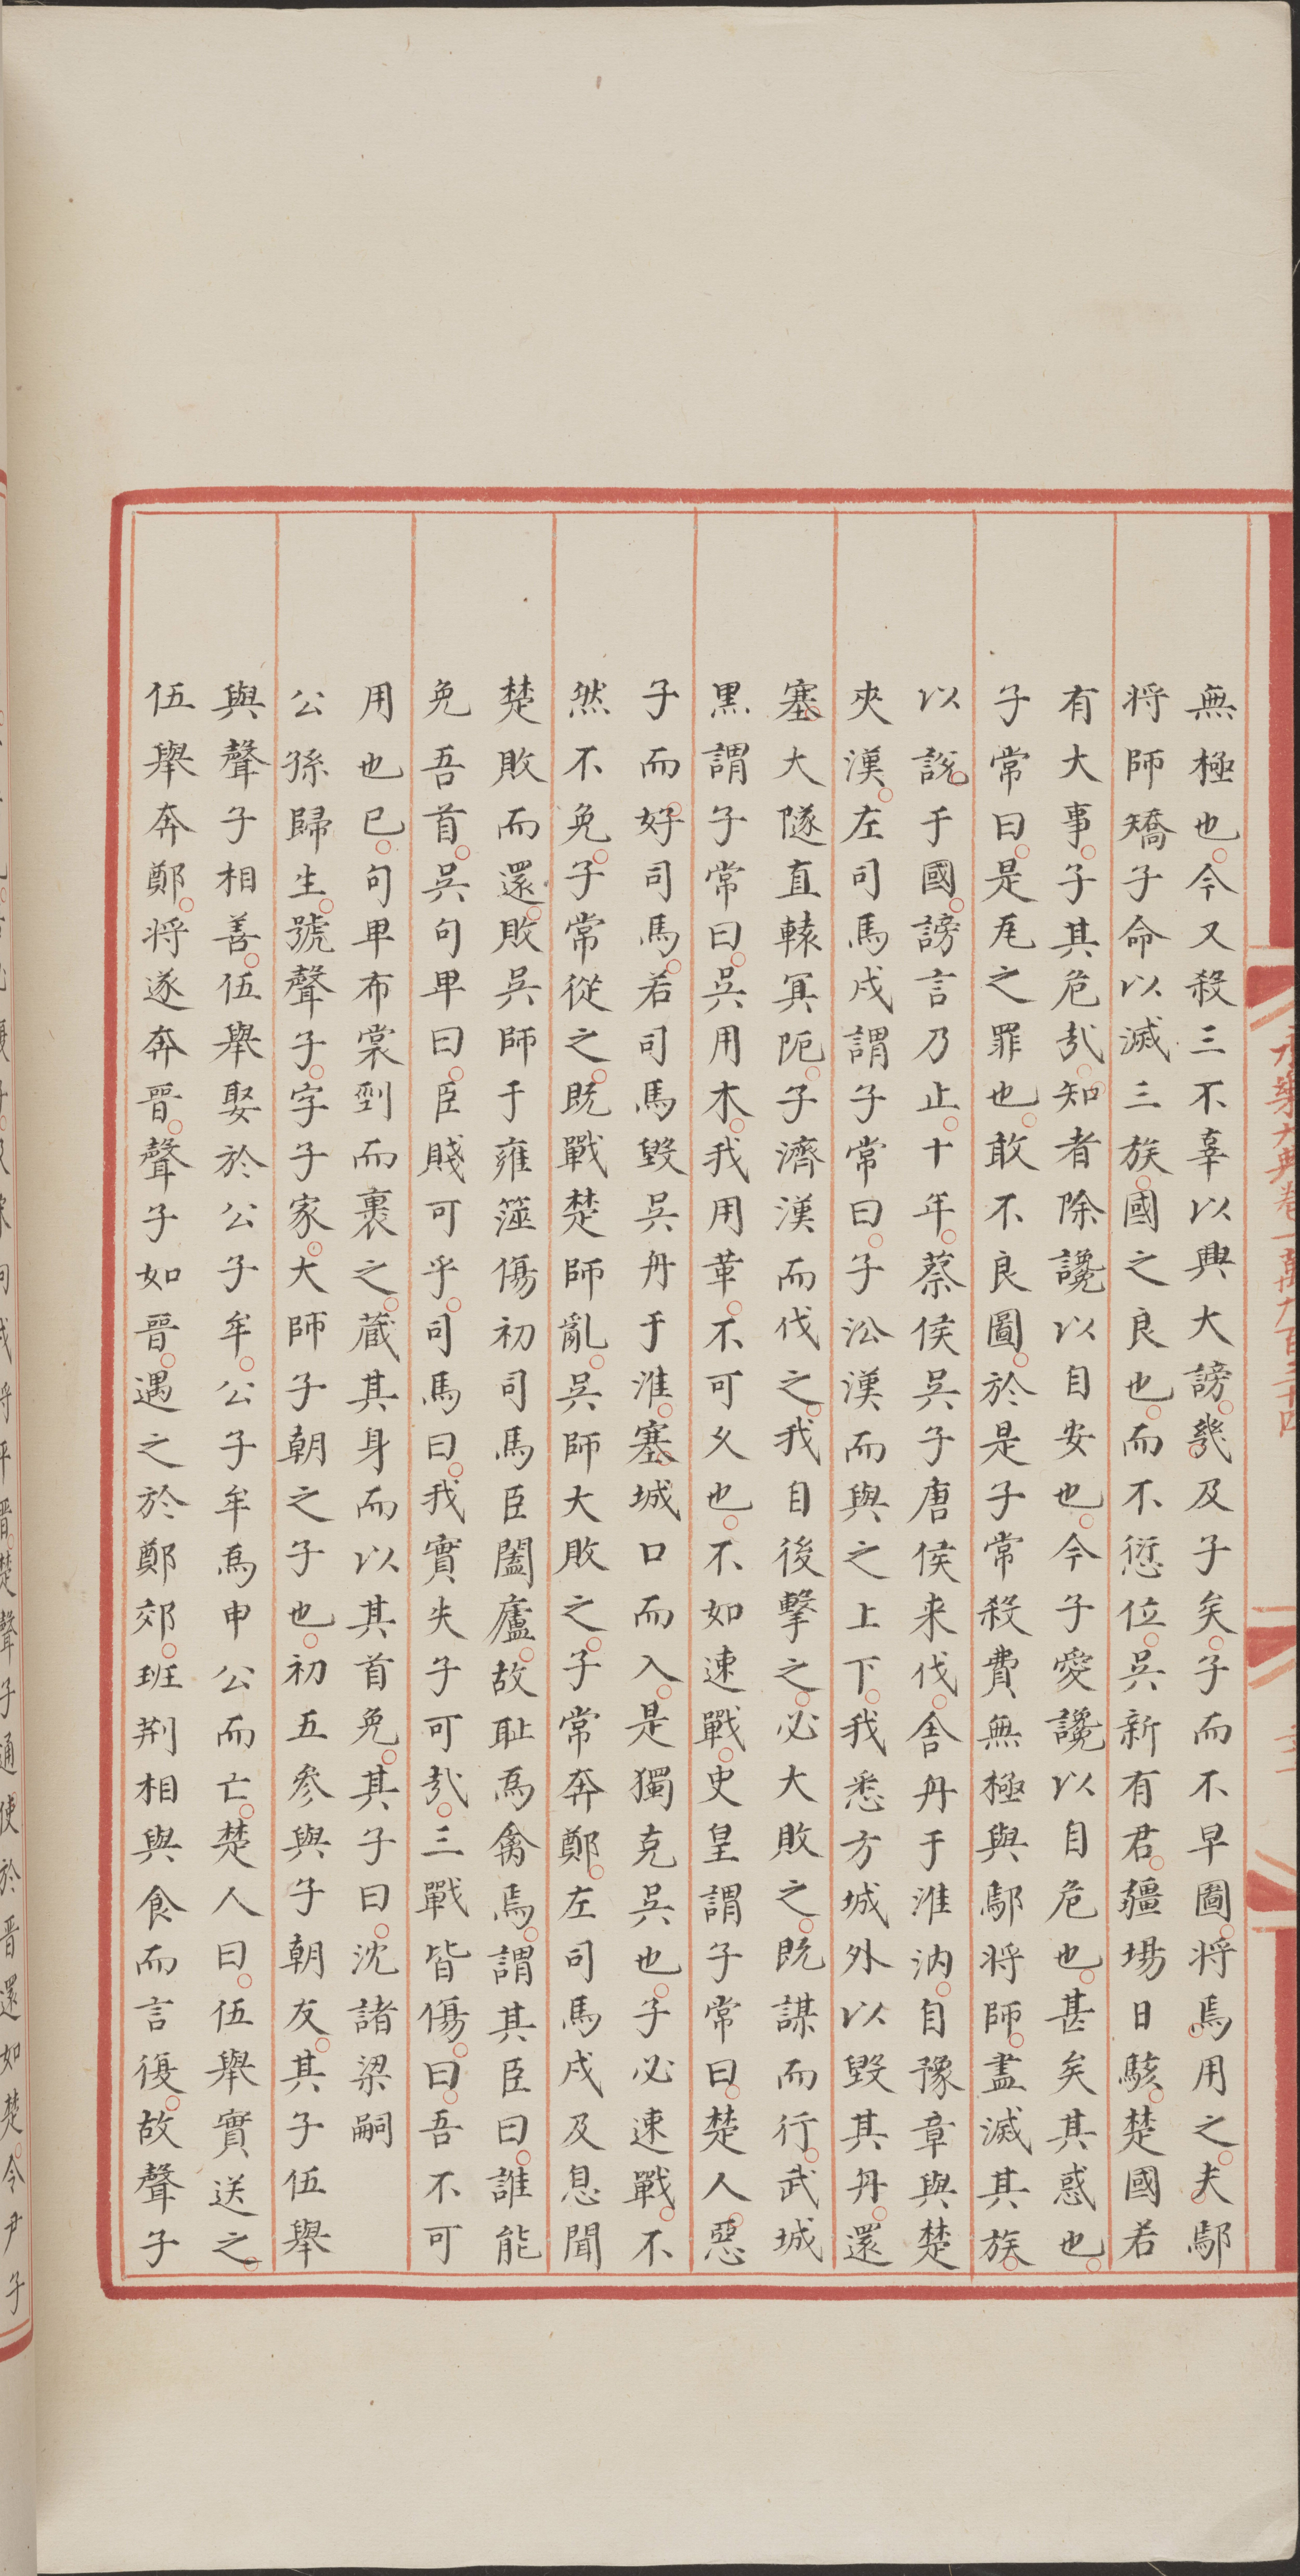 無極也今又殺三不辜以興大謗幾及子矣子而不早圖將焉用之夫鄢
將師矯子命以滅三族國之良也而不愆位吳新有君疆埸日駭楚國若
有大事子其危哉知者除讒以自安也今子愛讒以自危也甚矣其惑也
子常曰是瓦之罪也敢不良圖於是子常殺費無極與鄢將師盡滅其族
以說于國謗言乃止十年蔡侯吳子唐侯来伐舍舟于淮汭自豫章與楚
夾漢左司馬戌謂子常曰子沿漢而與之上下我悉方城外以毀其舟還
塞大隧直轅冥阨子濟漢而伐之我自後擊之必大敗之既謀而行武城
黒謂子常曰吳用木我用革不可乆也不如速戰史皇謂子常曰楚人惡
子而好司馬若司馬毀吳舟于淮塞城口而入是獨克吳也子必速戰不
然不免子常從之既戰楚師亂吳師大敗之子常奔鄭左司馬戌及息聞
楚敗而還敗吳師于雍澨傷初司馬臣闔廬故耻為禽焉謂其臣曰誰能
免吾首吳句卑曰臣賤可乎司馬曰我實失子可哉三戰皆傷曰吾不可
用也已句卑布裳剄而裹之蔵其身而以其首免其子曰沈諸梁嗣
公孫歸生號聲子字子家大師子朝之子也初五参與子朝友其子伍舉
與聲子相善伍舉娶於公子牟公子牟爲申公而亡楚人曰伍舉實送之
伍舉奔鄭將遂奔晉聲子如晉遇之於鄭郊班荆相與食而言復故聲子
將平晉楚聲子通使於晋還如楚令尹子
永樂大典卷一萬九百三十四